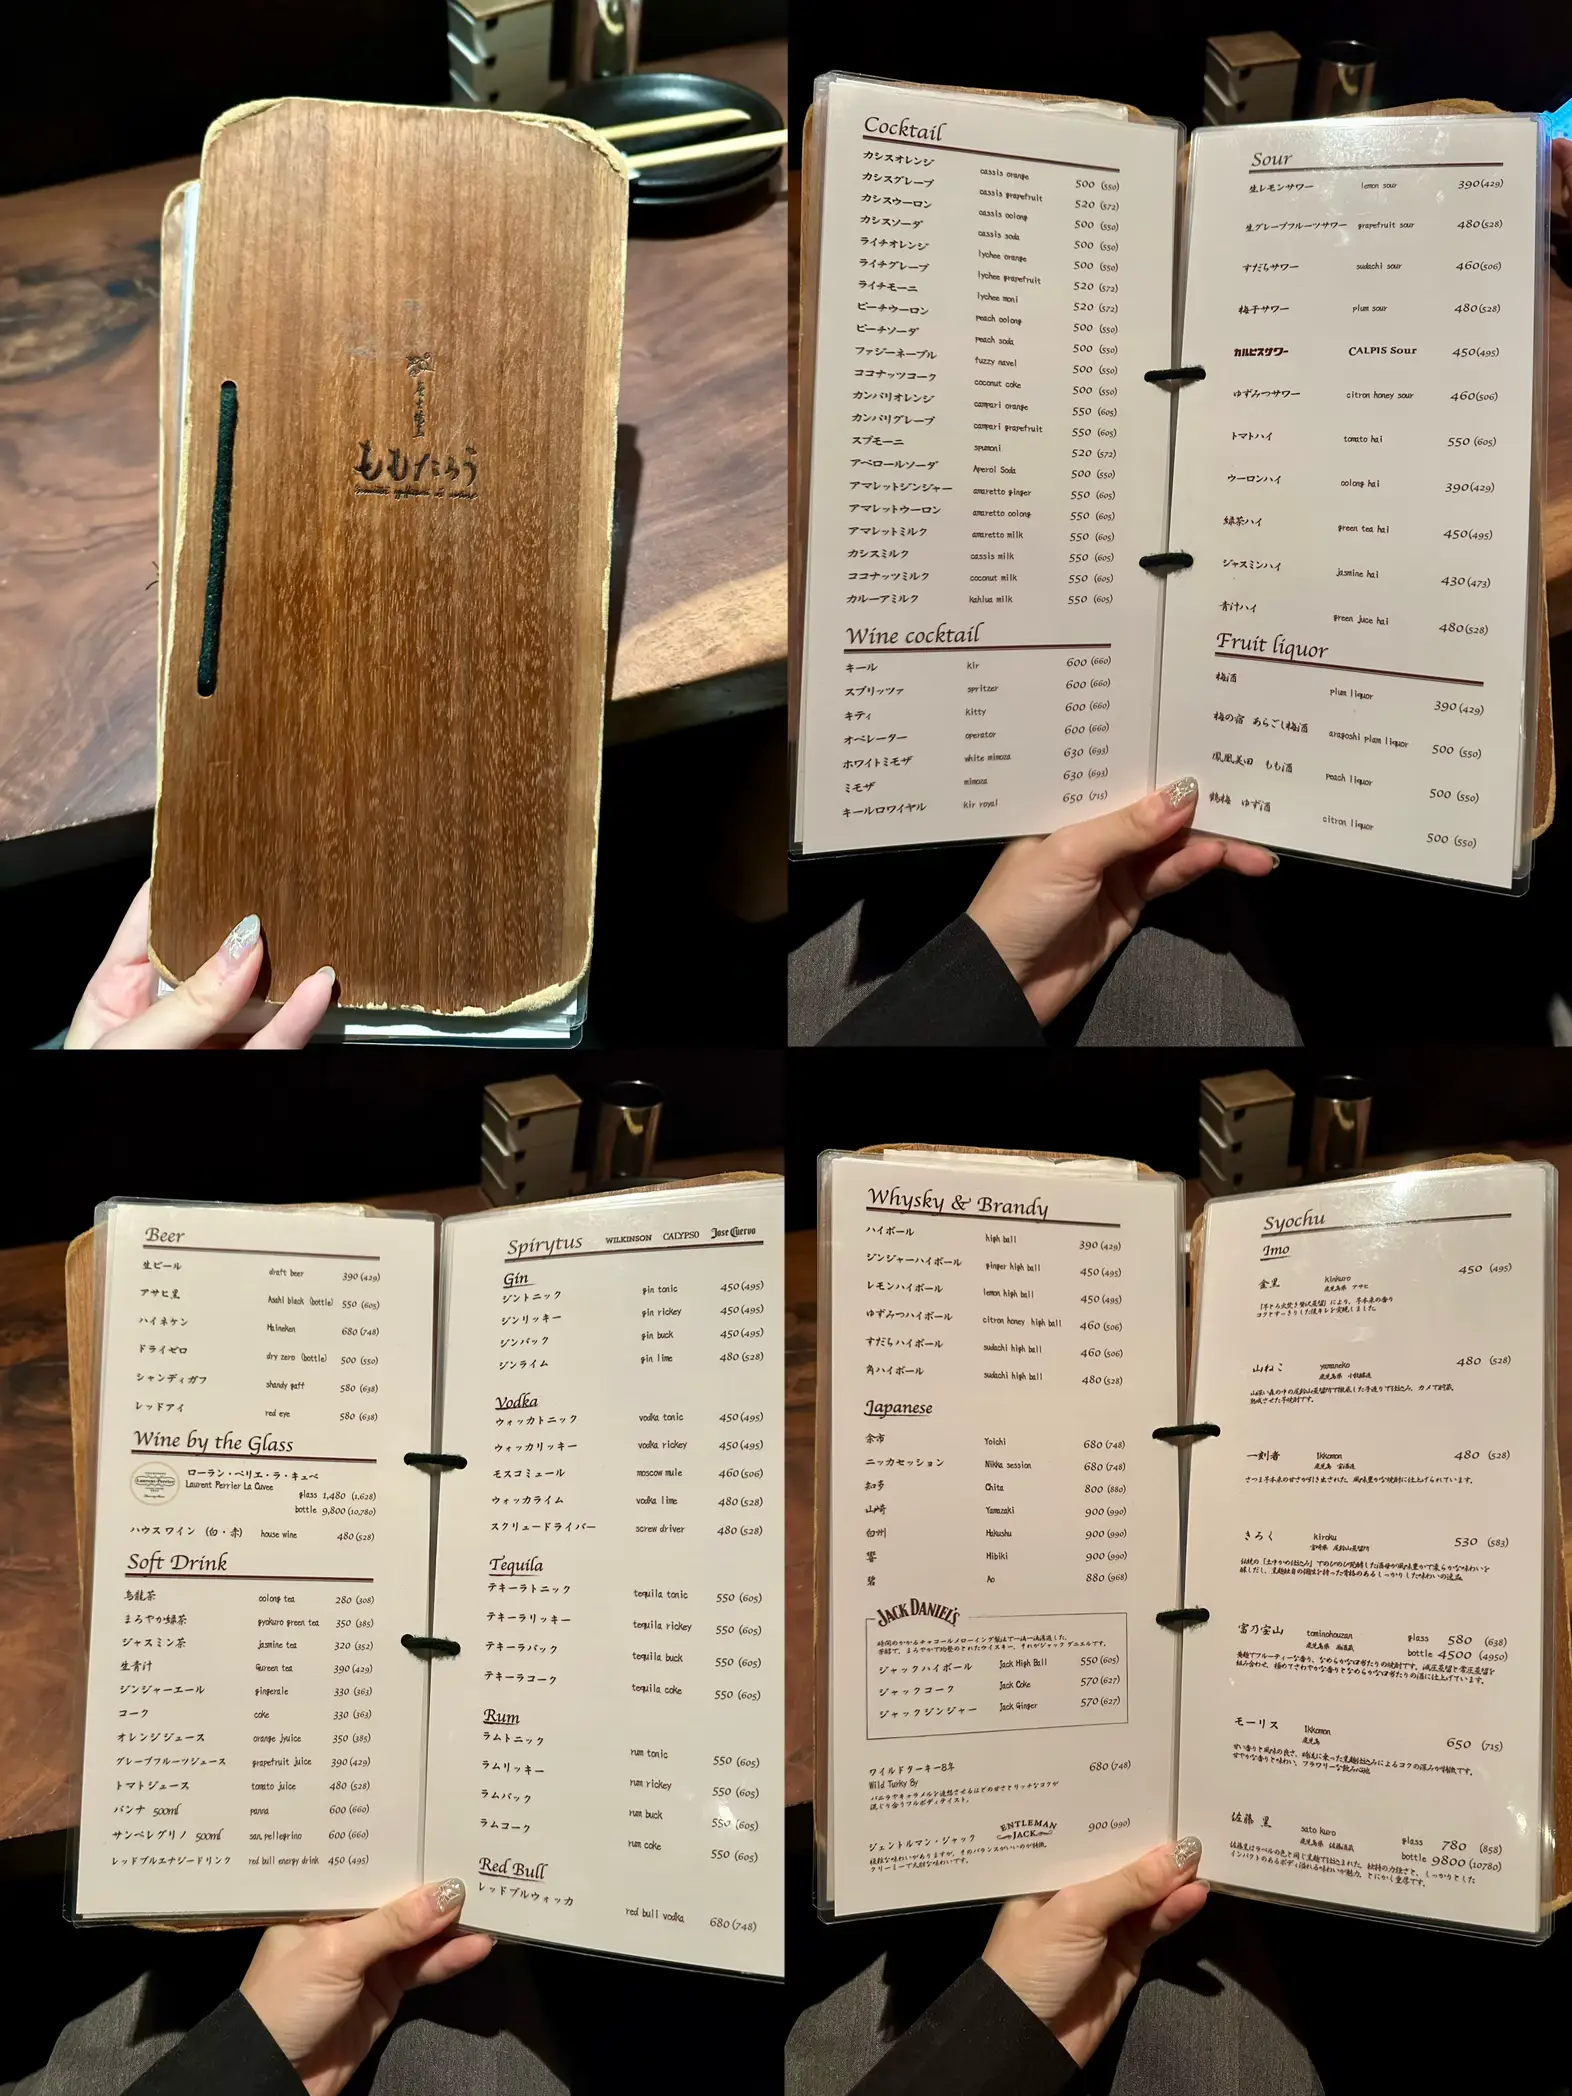 もむたろう
Cocktail
カシスオレンジ cassis orange 500 (550)
カシスグレープ cassis grapefruit 520 (572)
カシスウーロン cassis oolong 500 (550)
カシスソーダ cassis soda 500 (550)
ライチオレンジ lychee orange 500 (550)
ライチグレープ lychee grapefruit 520 (572)
ライチモーニ lychee moni 520 (572)
ピーチウーロン peach oolong 500 (550)
ピーチソーダ peach soda 500 (550)
ファジーネーブル fuzzy navel 500 (550)
ココナッツコーク coconut coke 500 (550)
カンパリオレンジ campari orange 550 (605)
カンパリグレープ campari grapefruit 550 (605)
スプモーニ spumoni 520 (572)
アペロールソーダ Aperol Soda 500 (550)
アマレットジンジャー amaretto ginger 550 (605)
アマレットウーロン amaretto oolong 550 (605)
アマレットミルク amaretto milk 550 (605)
カシスミルク cassis milk 550 (605)
ココナッツミルク coconut milk 550 (605)
カルーアミルク kahlua milk 550 (605)
Wine cocktail
キール kir 600 (660)
スプリッツァ spritzer 600 (660)
キティ kitty 600 (660)
オペレーター operator 600 (660)
ホワイトミモザ white mimoza 630 (693)
ミモザ mimoza 630 (693)
キールロワイヤル kir royal 650 (715)
Sour
生レモンサワー lemon sour 390(429)
生グレープフルーツサワー grapefruit sour 480(528)
すだちサワー sudachi sour 460(506)
梅干サワー plum sour 480(528)
カルピスサワー CALPIS Sour 450(495)
ゆずみつサワー citron honey sour 460(506)
トマトハイ tomato hai 550 (605)
ウーロンハイ oolong hai 390(429)
緑茶ハイ green tea hai 450(495)
ジャスミンハイ jasmine hai 430(473)
青汁ハイ green juce hai 480(528)
Fruit liquor
梅酒 plum liquor 390(429)
梅の宿 あらごし梅酒 aragoshi plam liquor 500 (550)
鳳凰美田 もも酒 peach liquor 500 (550)
鶴梅 ゆず酒 citron liquor 500 (550)
Beer
生ビール draft beer 390(429)
アサヒ黒 Asahi black (bottle) 550 (605)
ハイネケン Haineken 680 (748)
ドライゼロ dry zero (bottle) 500 (550)
シャンディガフ shandy gaff 580 (638)
レッドアイ red eye 580 (638)
Wine by the Glass
Laurent-Perrier
ローラン・ペリエ・ラ・キュベ
Laurent Perrier La Cuvee
glass 1,480 (1,628)
bottle 9,800 (10,780)
ハウスワイン (白・赤) house wine 480(528)
Soft Drink
烏龍茶 oolong tea 280 (308)
まろやか緑茶 gyokuro green tea 350 (385)
ジャスミン茶 jasmine tea 320 (352)
生青汁 Gureen tea 390 (429)
ジンジャーエール gingerale 330 (363)
コーク coke 330 (363)
オレンジジュース orange jyuice 350 (385)
グレープフルーツジュース grapefruit juice 390(429)
トマトジュース tomato juice 480 (528)
パンナ 500ml panna 600 (660)
サンペレグリノ 500ml san pellegrino 600 (660)
レッドブルエナジードリンク red bull energy drink 450 (495)
Spirytus WILKINSON CALYPSO Jose Cuervo
Gin
ジントニック gin tonic 450(495)
ジンリッキー gin rickey 450(495)
ジンバック gin buck 450(495)
ジンライム gin lime 480 (528)
Vodka
ウォッカトニック vodka tonic 450(495)
ウォッカリッキー vodka rickey 450(495)
モスコミュール moscow mule 460(506)
ウォッカライム vodka lime 480 (528)
スクリュードライバー screw driver 480 (528)
Tequila
テキーラトニック tequila tonic 550 (605)
テキーラリッキー tequila rickey 550 (605)
テキーラバック tequila buck 550 (605)
テキーラコーク tequila coke 550 (605)
Rum
ラムトニック rum tonic 550 (605)
ラムリッキー rum rickey 550 (605)
ラムバック rum buck 550 (605)
ラムコーク rum coke 550 (605)
Red Bull
レッドブルウォッカ red bull vodka 680 (748)
Whysky & Brandy
ハイボール high ball 390(429)
ジンジャーハイボール ginger high ball 450(495)
レモンハイボール lemon high ball 450(495)
ゆずみつハイボール citron honey high ball 460 (506)
すだちハイボール sudachi high ball 460 (506)
角ハイボール sudachi high ball 480(528)
Japanese
余市 Yoichi 680 (748)
ニッカセッション Nikka session 680 (748)
知多 Chita 800 (880)
山崎 Yamazaki 900 (990)
白州 Hakushu 900 (990)
響 Hibiki 900 (990)
碧 Ao 880 (968)
JACK DANIEL'S
時間のかかるチャコールメローイング製法で一滴一滴濾過した、
芳醇で、まろやかで均整のとれたウイスキー、それがジャック ダニエルです。
ジャックハイボール Jack High Ball 550 (605)
ジャックコーク Jack Coke 570 (627)
ジャックジンジャー Jack Ginger 570 (627)
ワイルドターキー8年 680 (748)
Wild Turky 8y
バニラやキャラメルを連想させるほどの甘さとリッチなコクが
混じり合うフルボディテイスト。
ジェントルマン・ジャック ENTLEMAN JACK 900 (990)
複雑な味わいがありますが、そのバランスがいいのが特徴。
クリーミーで大胆な味わいです。
Syochu
Imo
金黒 kinkuro 450 (495)
鹿児島県 アサヒ
コクとすっきりした後キレを実現しました
山ねこ yamaneko 480 (528)
山深い森の中の尾鈴山蒸留所で徹底した手造りで仕込み、カメで貯蔵、
熟成させた芋焼酎です。
一刻者 Ikkomon 480 (528)
鹿児島 宝酒造
さつま芋本来の甘さが引き出された、風味豊かな焼酎に仕上げられています。
きろく kiroku 530 (583)
宮崎県 尾鈴山蒸留所
富乃宝山 tominohouzan glass 580 (638)
鹿児島県 西酒造 bottle 4500 (4950)
黄麹でフルーティーな香り、なめらかな口当たりの焼酎です。減圧蒸留と常圧蒸留を
組み合わせ、極めてさわやかな香りとなめらかな口当たりの酒に仕上げています。
モーリス Ikkomon 650 (715)
鹿児島
甘やかな香りと味わい、フラワリーな飲み心地
佐藤 黒 sato kuro glass 780 (858)
鹿児島県 佐藤酒造 bottle 9800 (10780)
佐藤黒はラベルの色と同じ黒麹で仕込まれた、独特の力強さと、しっかりとした
インパクトのあるボディ溢れる味わいが魅力、とにかく重厚です。